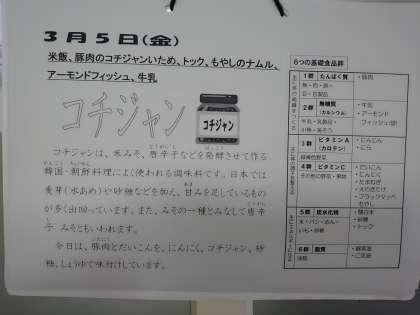 3月5日(金)
米飯、豚肉のコチジャンいため、トック、もやしのナムル、
アーモンドフィッシュ、牛乳
コチジャン
コチジャン
コチジャンは、米みそ、唐辛子などを発酵させて作る
韓国・朝鮮料理によく使われる調味料です。日本では
麦芽(水あめ)や砂糖などを加え、甘みを足しているもの
が多く出回っています。また、みその一種とみなして唐辛
子みそともいわれます。
今日は、豚肉とだいこんを、にんにく、コチジャン、砂
糖、しょうゆで味付けしています。
6つの基礎食品群
1群 たんぱく質
魚・肉・卵・
豆・豆製品
・豚肉
2群 無機質
(カルシウム)
牛乳・乳製品・
小魚・海そう
・牛乳
・アーモンド
フィッシュ
3群 ビタミンA
(カロテン)
緑黄色野菜
・にんじん
・にら
4群 ビタミンC
その他の野菜・果物
・だいこん
・にんにく
・たまねぎ
・えのきたけ
・ブラックマッペ
もやし
5群 炭水化物
米・パン・めん・
いも・砂糖
・精白米
・砂糖
・トック
6群 脂質
油脂
・ごま油